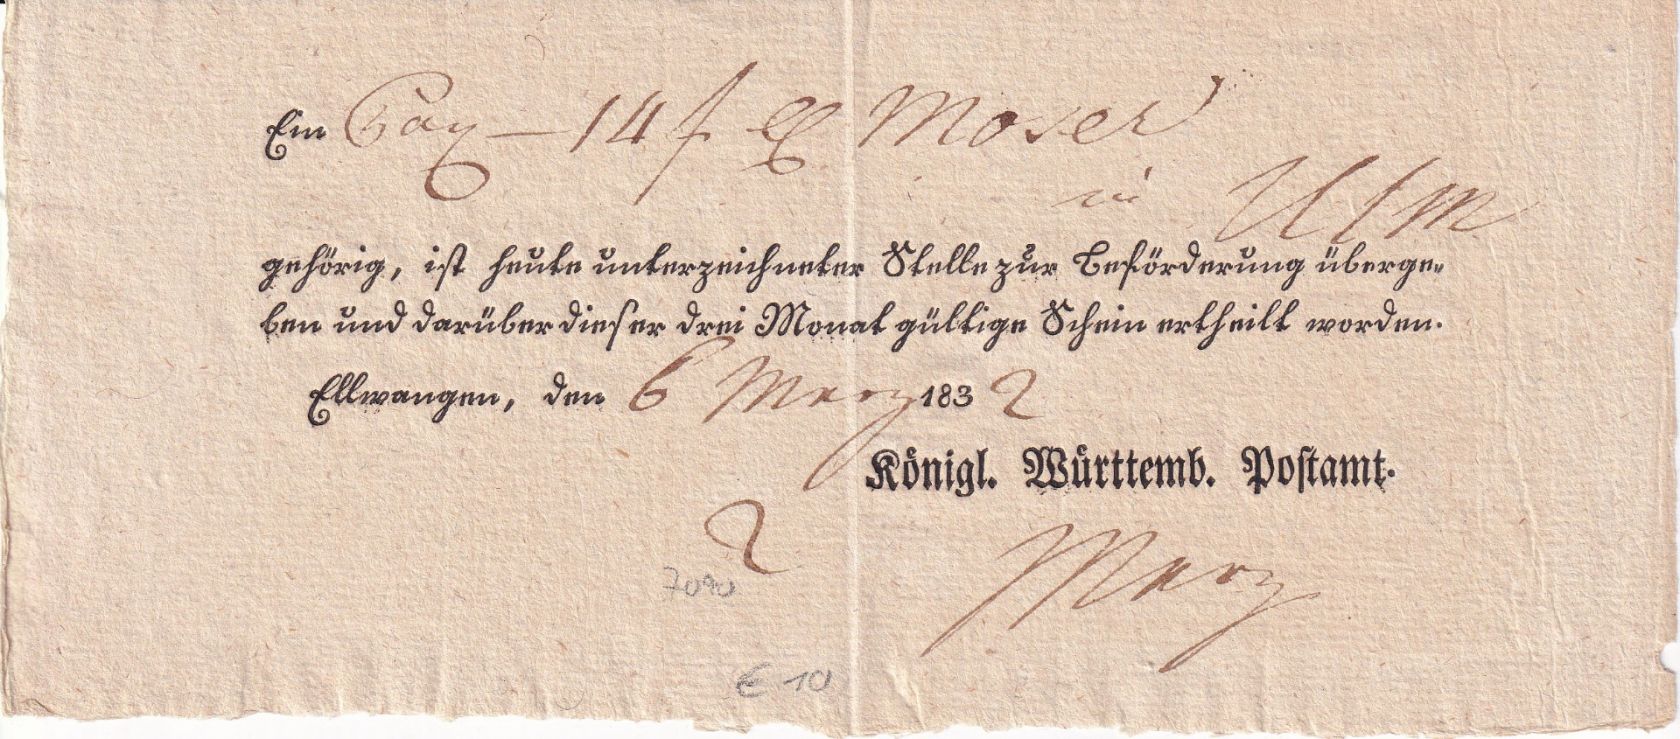 Ein Paq – 14 f Moser
in Ulm
gehörig, ist heute unterzeichneter Stelle zur Beförderung überge-
ben und darüber dieser drei Monat gültige Schein ertheilt worden.
Ellwangen, den 6 Merz 1832
Königl. Württemb. Postamt.
2
Merz
7090
€ 10